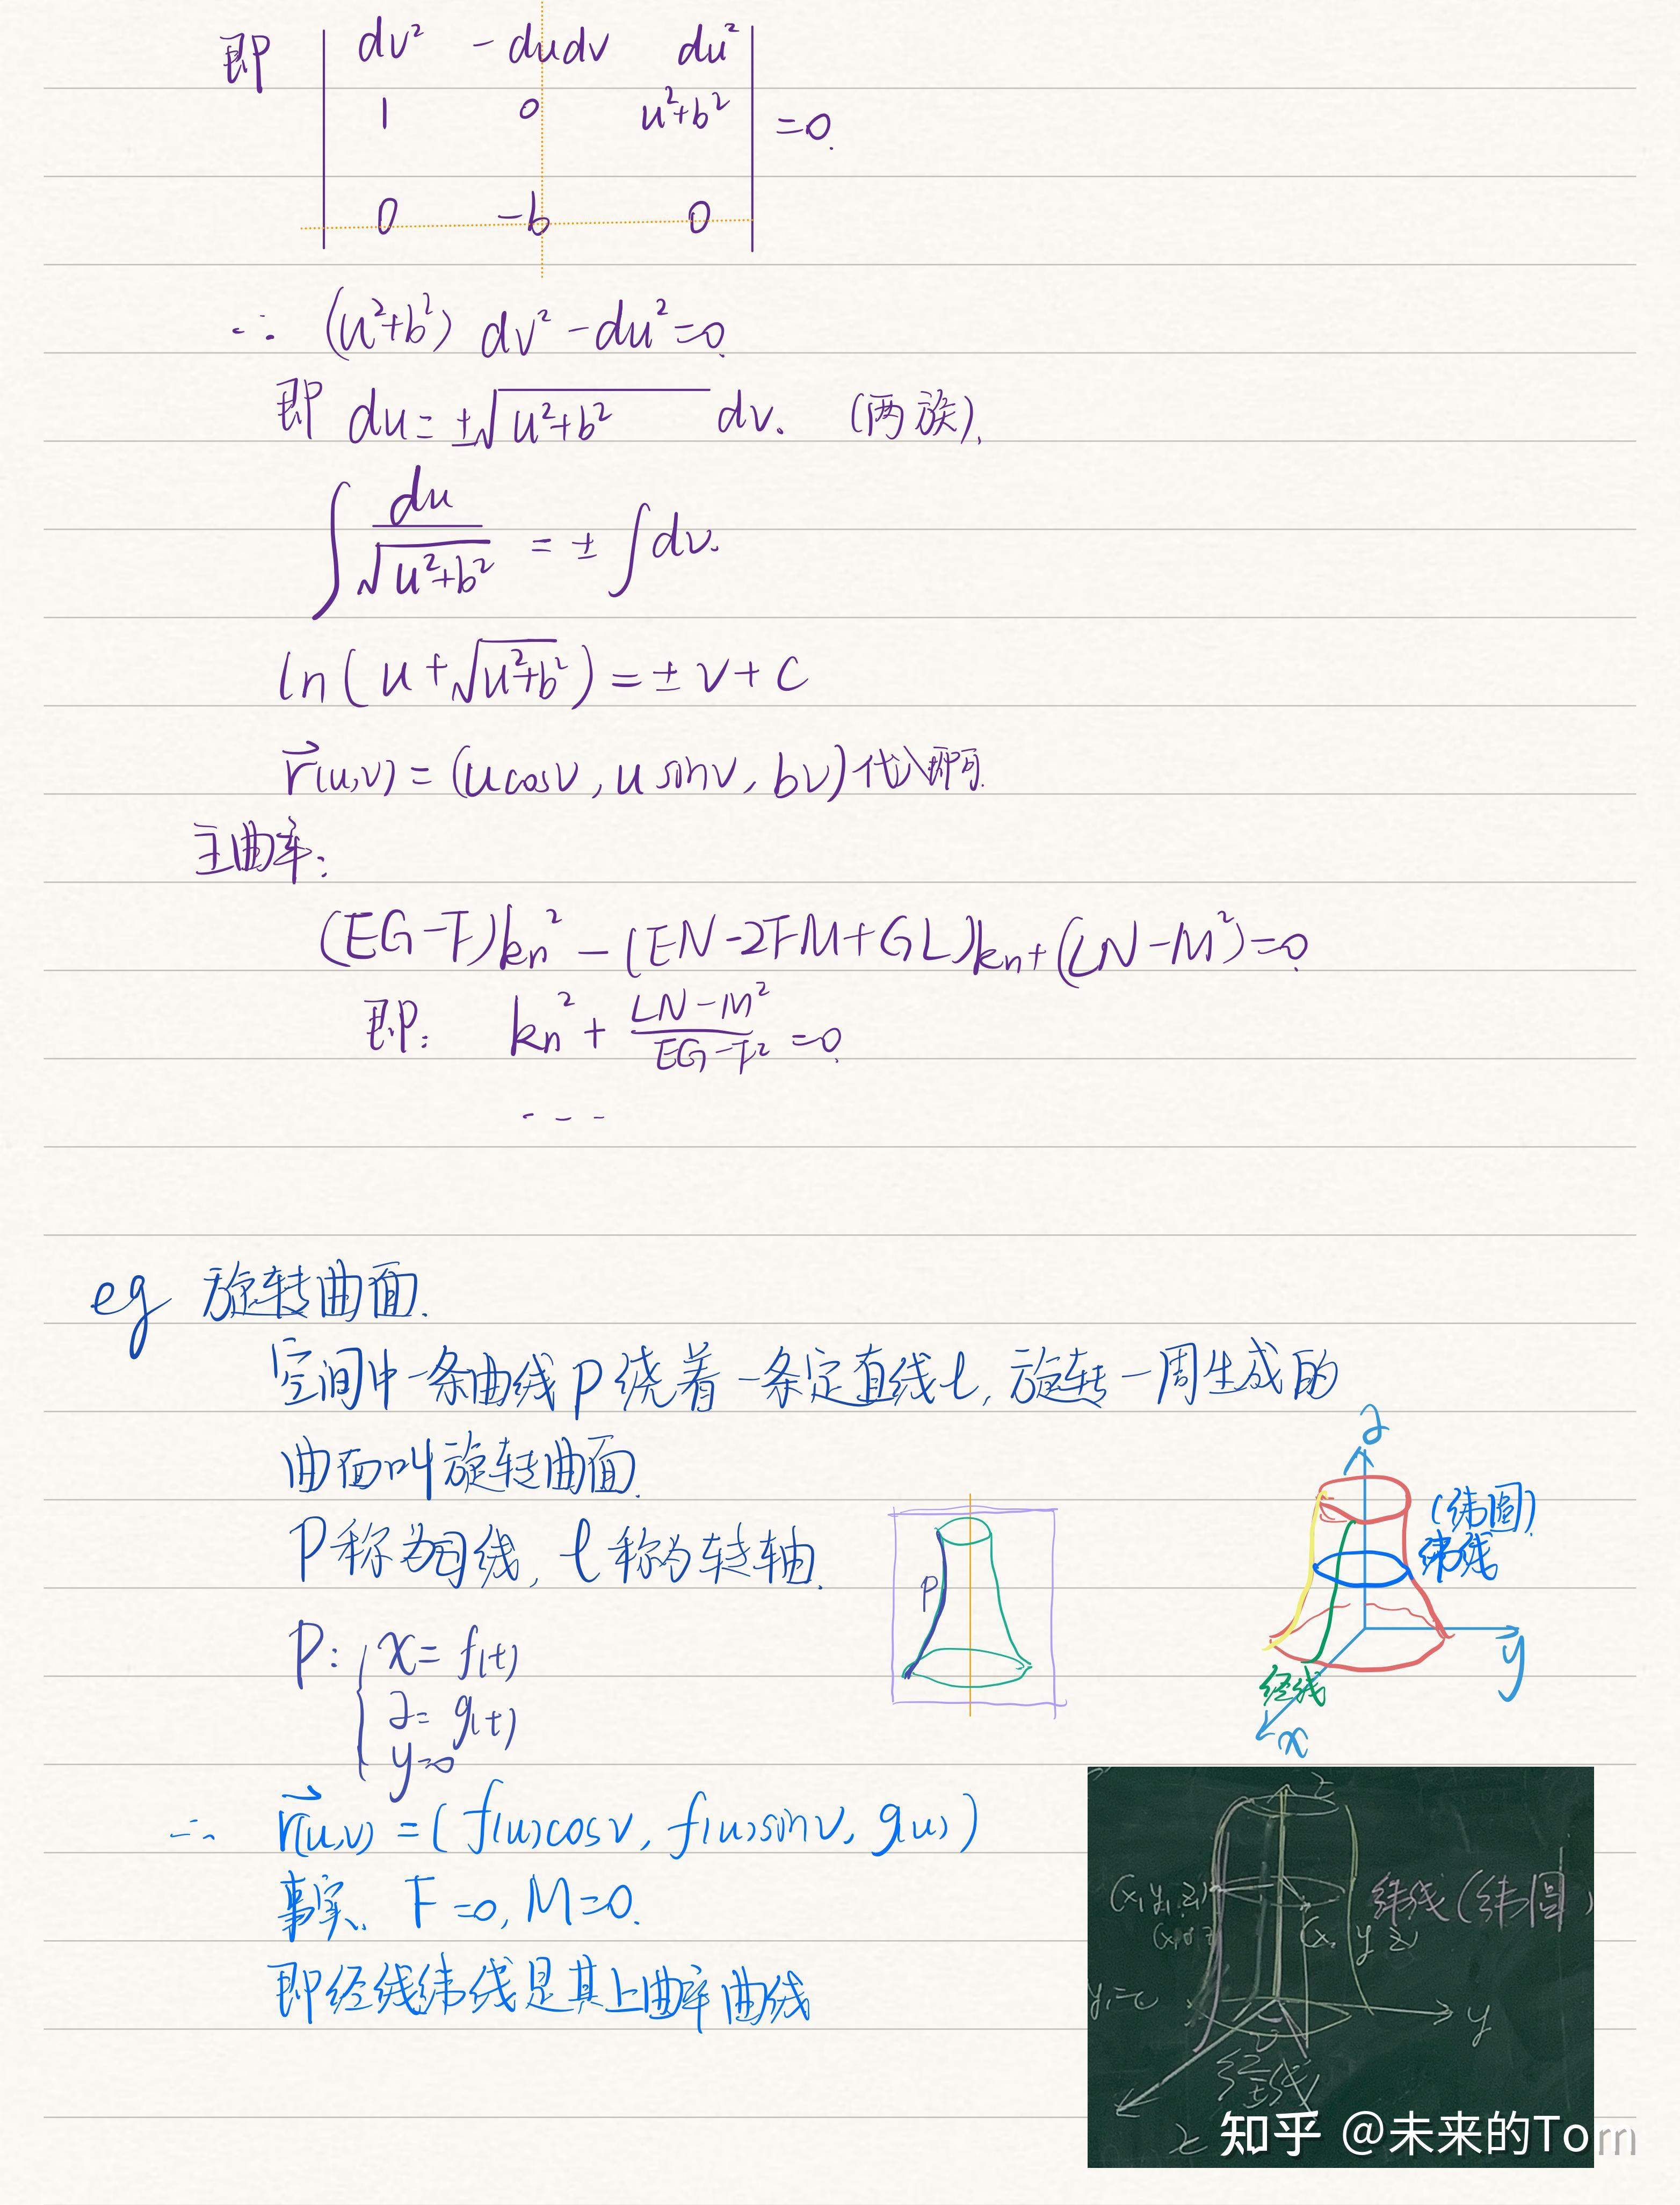 即 | dv² -dudv du² |
| 1 0 u²+b² | =0.
| 0 -b 0 |
∴ (u²+b²) dv² - du² =0.
即 du = ±√(u²+b²) dv. (两族).
∫ du/√(u²+b²) = ± ∫dv.
ln(u+√(u²+b²)) = ± v + C
r⃗(u,v) = (ucosv, usinv, bv) 代入即可.
主曲率:
(EG-F)kn² - (EN-2FM+GL)kn + (LN-M²)=0.
即: kn² + (LN-M²)/(EG-F²) =0.
- - -
eg 旋转曲面.
空间中一条曲线 p 绕着一条定直线 l, 旋转一周生成的
曲面叫旋转曲面.
P 称为母线, l 称为转轴.
P
z
(纬圆)
纬线
y
经线
x
P: { x= f(t)
z= g(t)
y=0
∴ r⃗(u,v) = (f(u)cosv, f(u)sinv, g(u))
事实. F=0, M=0.
即经线纬线是其上曲率曲线
z
(x₁y₁z₁)
纬线(纬圆)
(x, y z)
y
经线
知乎 @未来的Torn